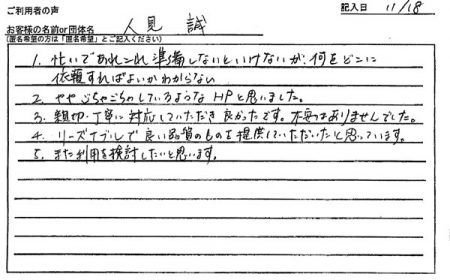 ご利用者の声
記入日 11/18
お客様の名前or団体名 人見 誠
(匿名希望の方は「匿名希望」とご記入ください)
1. 忙いであれこれ準備しないといけないが、何をどこに
依頼すればよいかわからない
2. ややごちゃごちゃしているような HPと思いました。
3. 親切・丁寧に対応していただき良かったです。不安はありませんでした。
4. リーズナブルで良い品質のものを提供していただいたと思っています。
5. また利用を検討したいと思います。